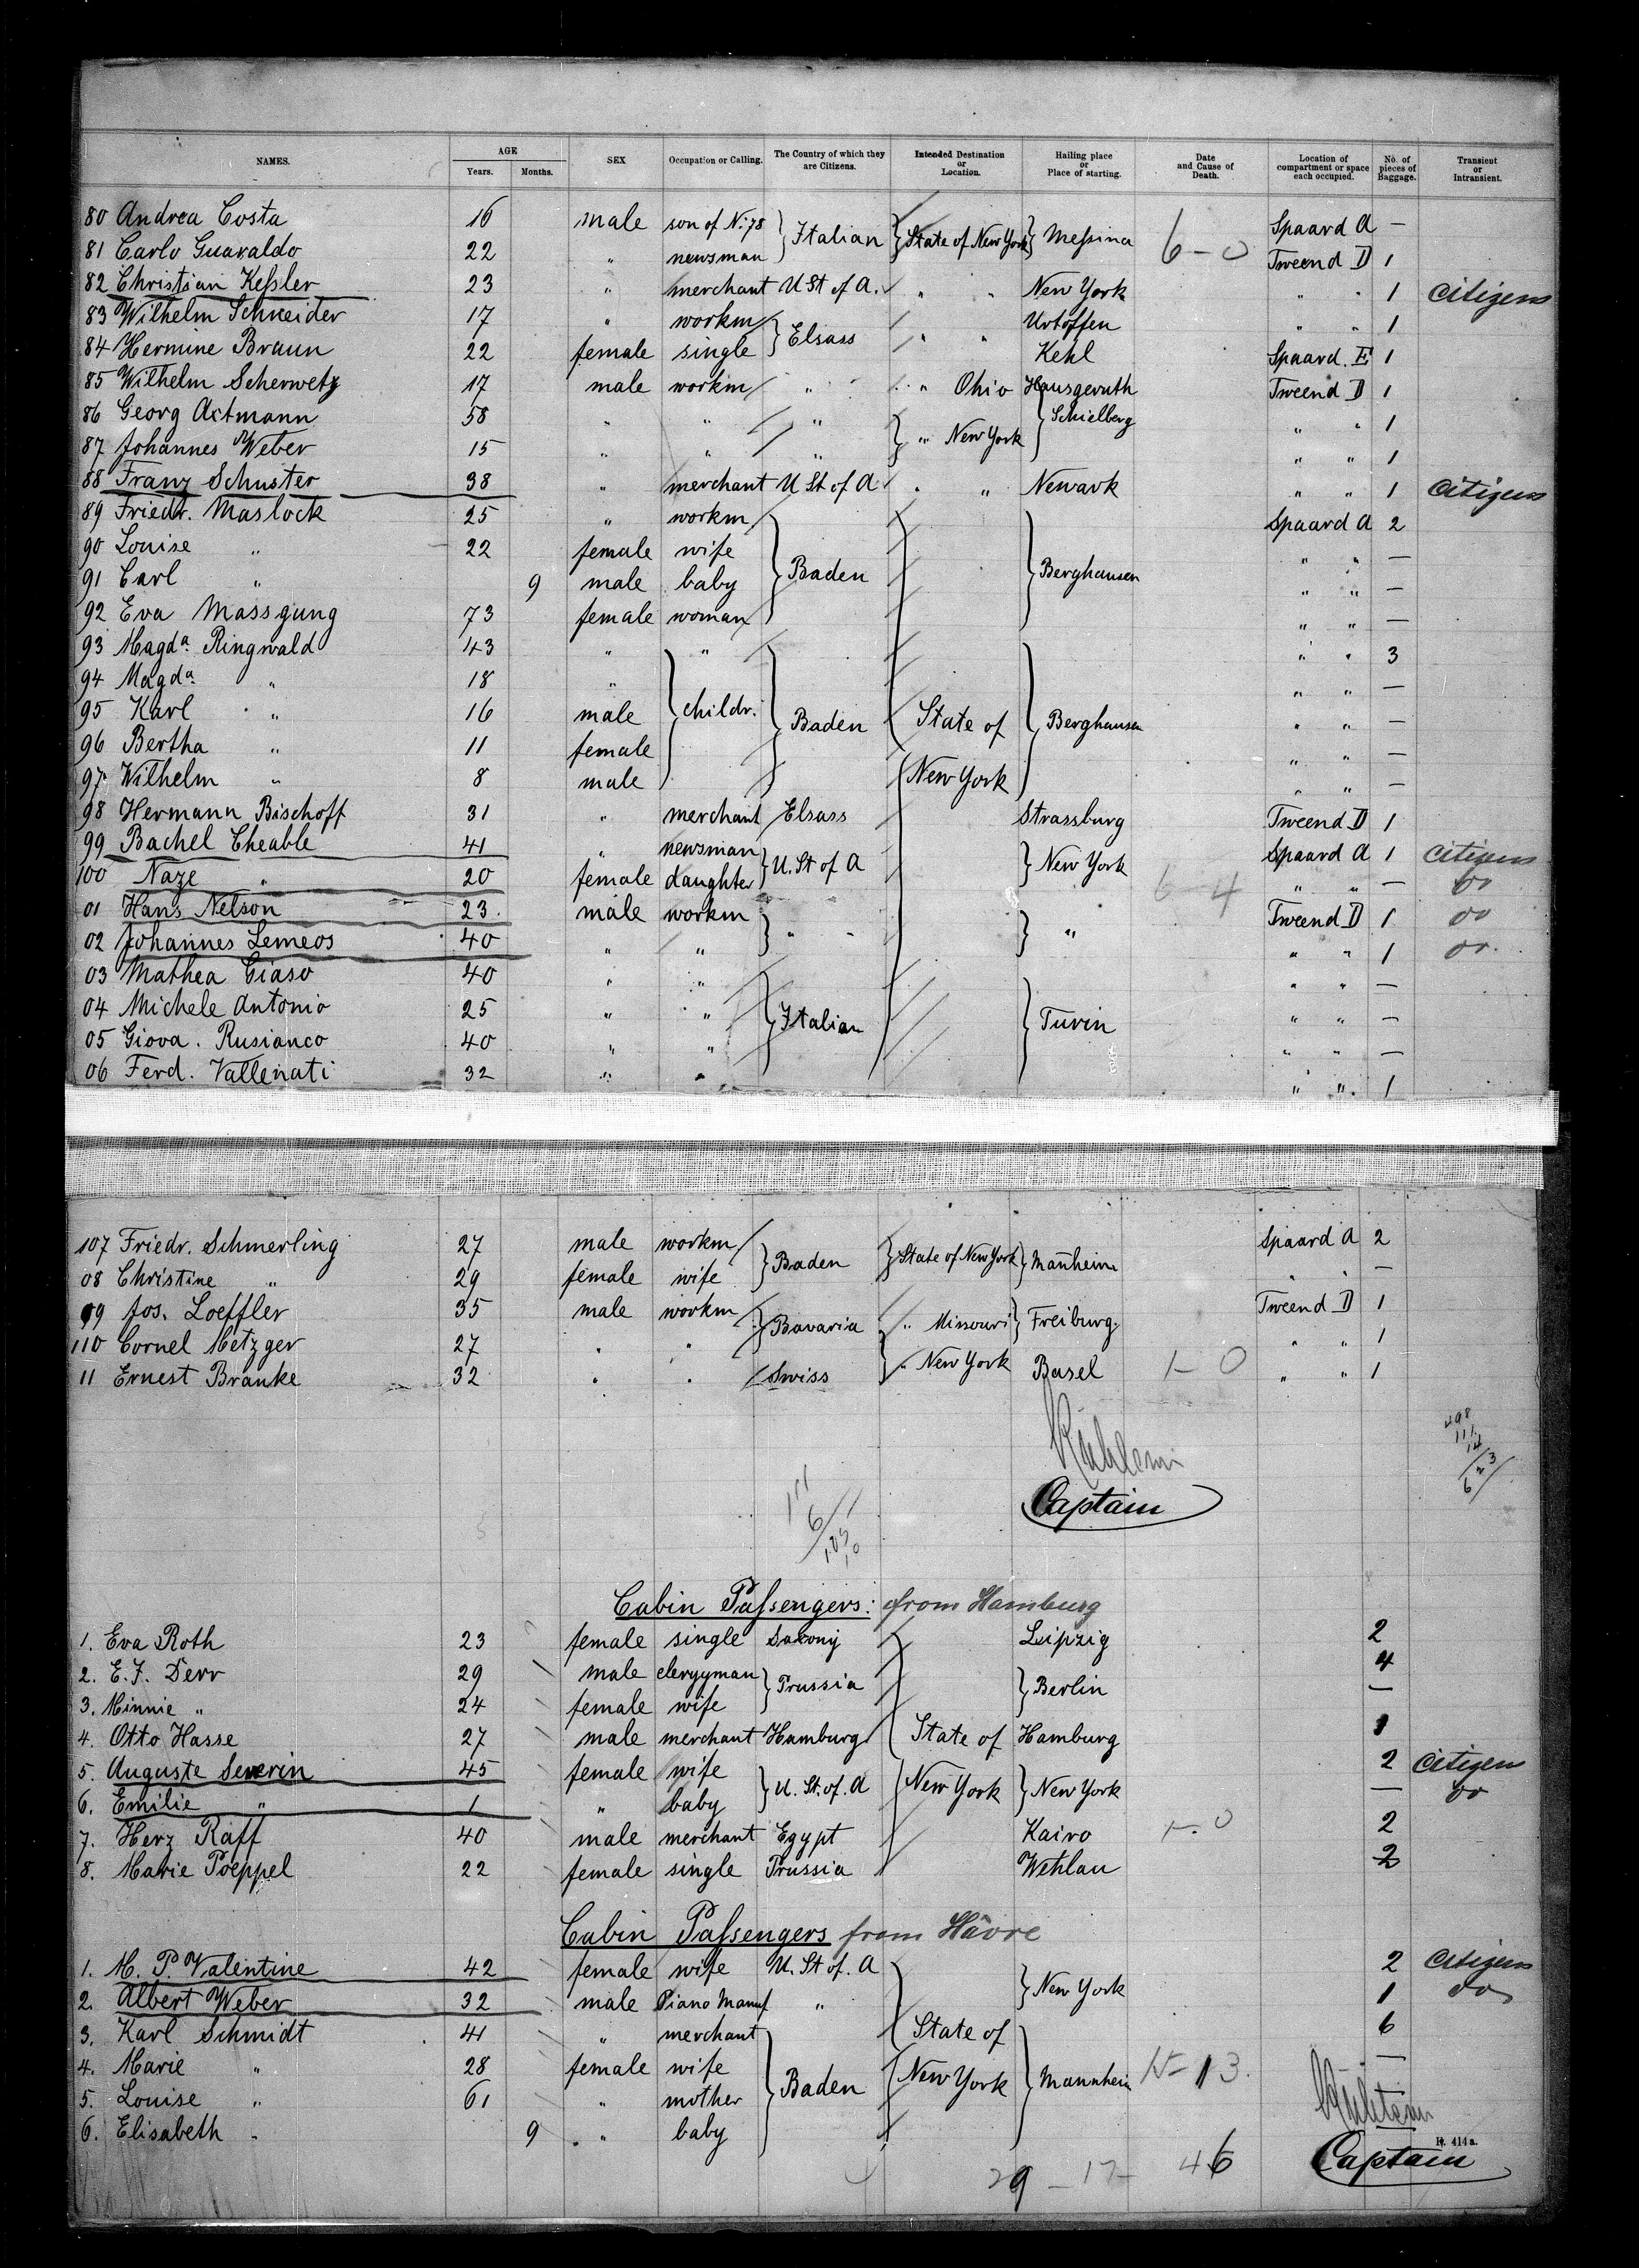 NAMES. AGE Years. Months. SEX Occupation or Calling. The Country of which they are Citizens. Intended Destination or Location. Hailing place or Place of starting. Date and Cause of Death. Location of compartment or space each occupied. No. of pieces of Baggage. Transient or Intransient.
80 Andrea Costa 16 male son of N. 78 Italian State of New York Messina 6-0 Spaard A —
81 Carlo Guaraldo 22 " newsman Tweend D 1
82 Christian Kessler 23 " merchant U St of A. " " New York " " 1 citizens
83 Wilhelm Schneider 17 " workm Elsass Urloffen " " 1
84 Hermine Braun 22 female single " " Kehl Spaard. E 1
85 Wilhelm Scherwetz 17 male workm " " Ohio Hausgeruth Tweend D 1
86 Georg Actmann 58 " " " " New York Schielberg " " 1
87 Johannes Weber 15 " " " " " 1
88 Franz Schuster 38 " merchant U St of A " " Newark " " 1 citizens
89 Friedr. Maslock 25 " workm Baden Berghausen Spaard A 2
90 Louise " 22 female wife " " —
91 Carl " 9 male baby " " —
92 Eva Massgung 73 female woman " " —
93 Magda Ringwald 43 " " Baden State of New York Berghausen " " 3
94 Magda " 18 " childr. " " —
95 Karl " 16 male " " —
96 Bertha " 11 female " " —
97 Wilhelm " 8 male " " —
98 Hermann Bischoff 31 " merchant Elsass Strassburg Tweend D 1
99 Bachel Cheable 41 " newsman U. St of A New York Spaard A 1 citizens
100 Naze " 20 female daughter 6-4 " " — do
01 Hans Nelson 23. male workm " " " Tweend D 1 do
02 Johannes Lemeos 40 " " " " 1 do.
03 Mathea Ciaso 40 " " Italian Turin " " —
04 Michele Antonio 25 " " " " —
05 Giova. Rusianco 40 " " " " —
06 Ferd. Vallenati 32 " " " " 1
107 Friedr. Schmerling 27 male workm Baden State of New York Manheim Spaard A 2
08 Christine " 29 female wife " " —
09 Jos. Loeffler 35 male workm Bavaria " Missouri Freiburg. Tweend D 1
110 Cornel Metzger 27 " " " " 1
11 Ernest Branke 32 " " Swiss " New York Basel 1-0 " " 1
498
111
14
623
Captain
111
6
105
Cabin Passengers: from Hamburg
1. Eva Roth 23 female single Saxony State of New York Leipzig 2
2. E. F. Derr 29 male clergyman Prussia Berlin 4
3. Minnie " 24 female wife —
4. Otto Hasse 27 male merchant Hamburg Hamburg 1
5. Auguste Severin 45 female wife U. St. of. A New York 2 citizens
6. Emilie " 1 " baby — do
7. Herz Raff 40 male merchant Egypt Kairo 1-0 2
8. Marie Poeppel 22 female single Prussia Wehlau 2
Cabin Passengers from Hâvre
1. M. P. Valentine 42 female wife U. St. of. A State of New York New York 2 citizens
2. Albert Weber 32 male Piano Manuf " 1 do
3. Karl Schmidt 41 " merchant Baden Mannheim 6
4. Marie " 28 female wife 13. —
5. Louise " 61 " mother
6. Elisabeth " 9 " baby
R. 414 a.
Captain
29 - 17 - 46